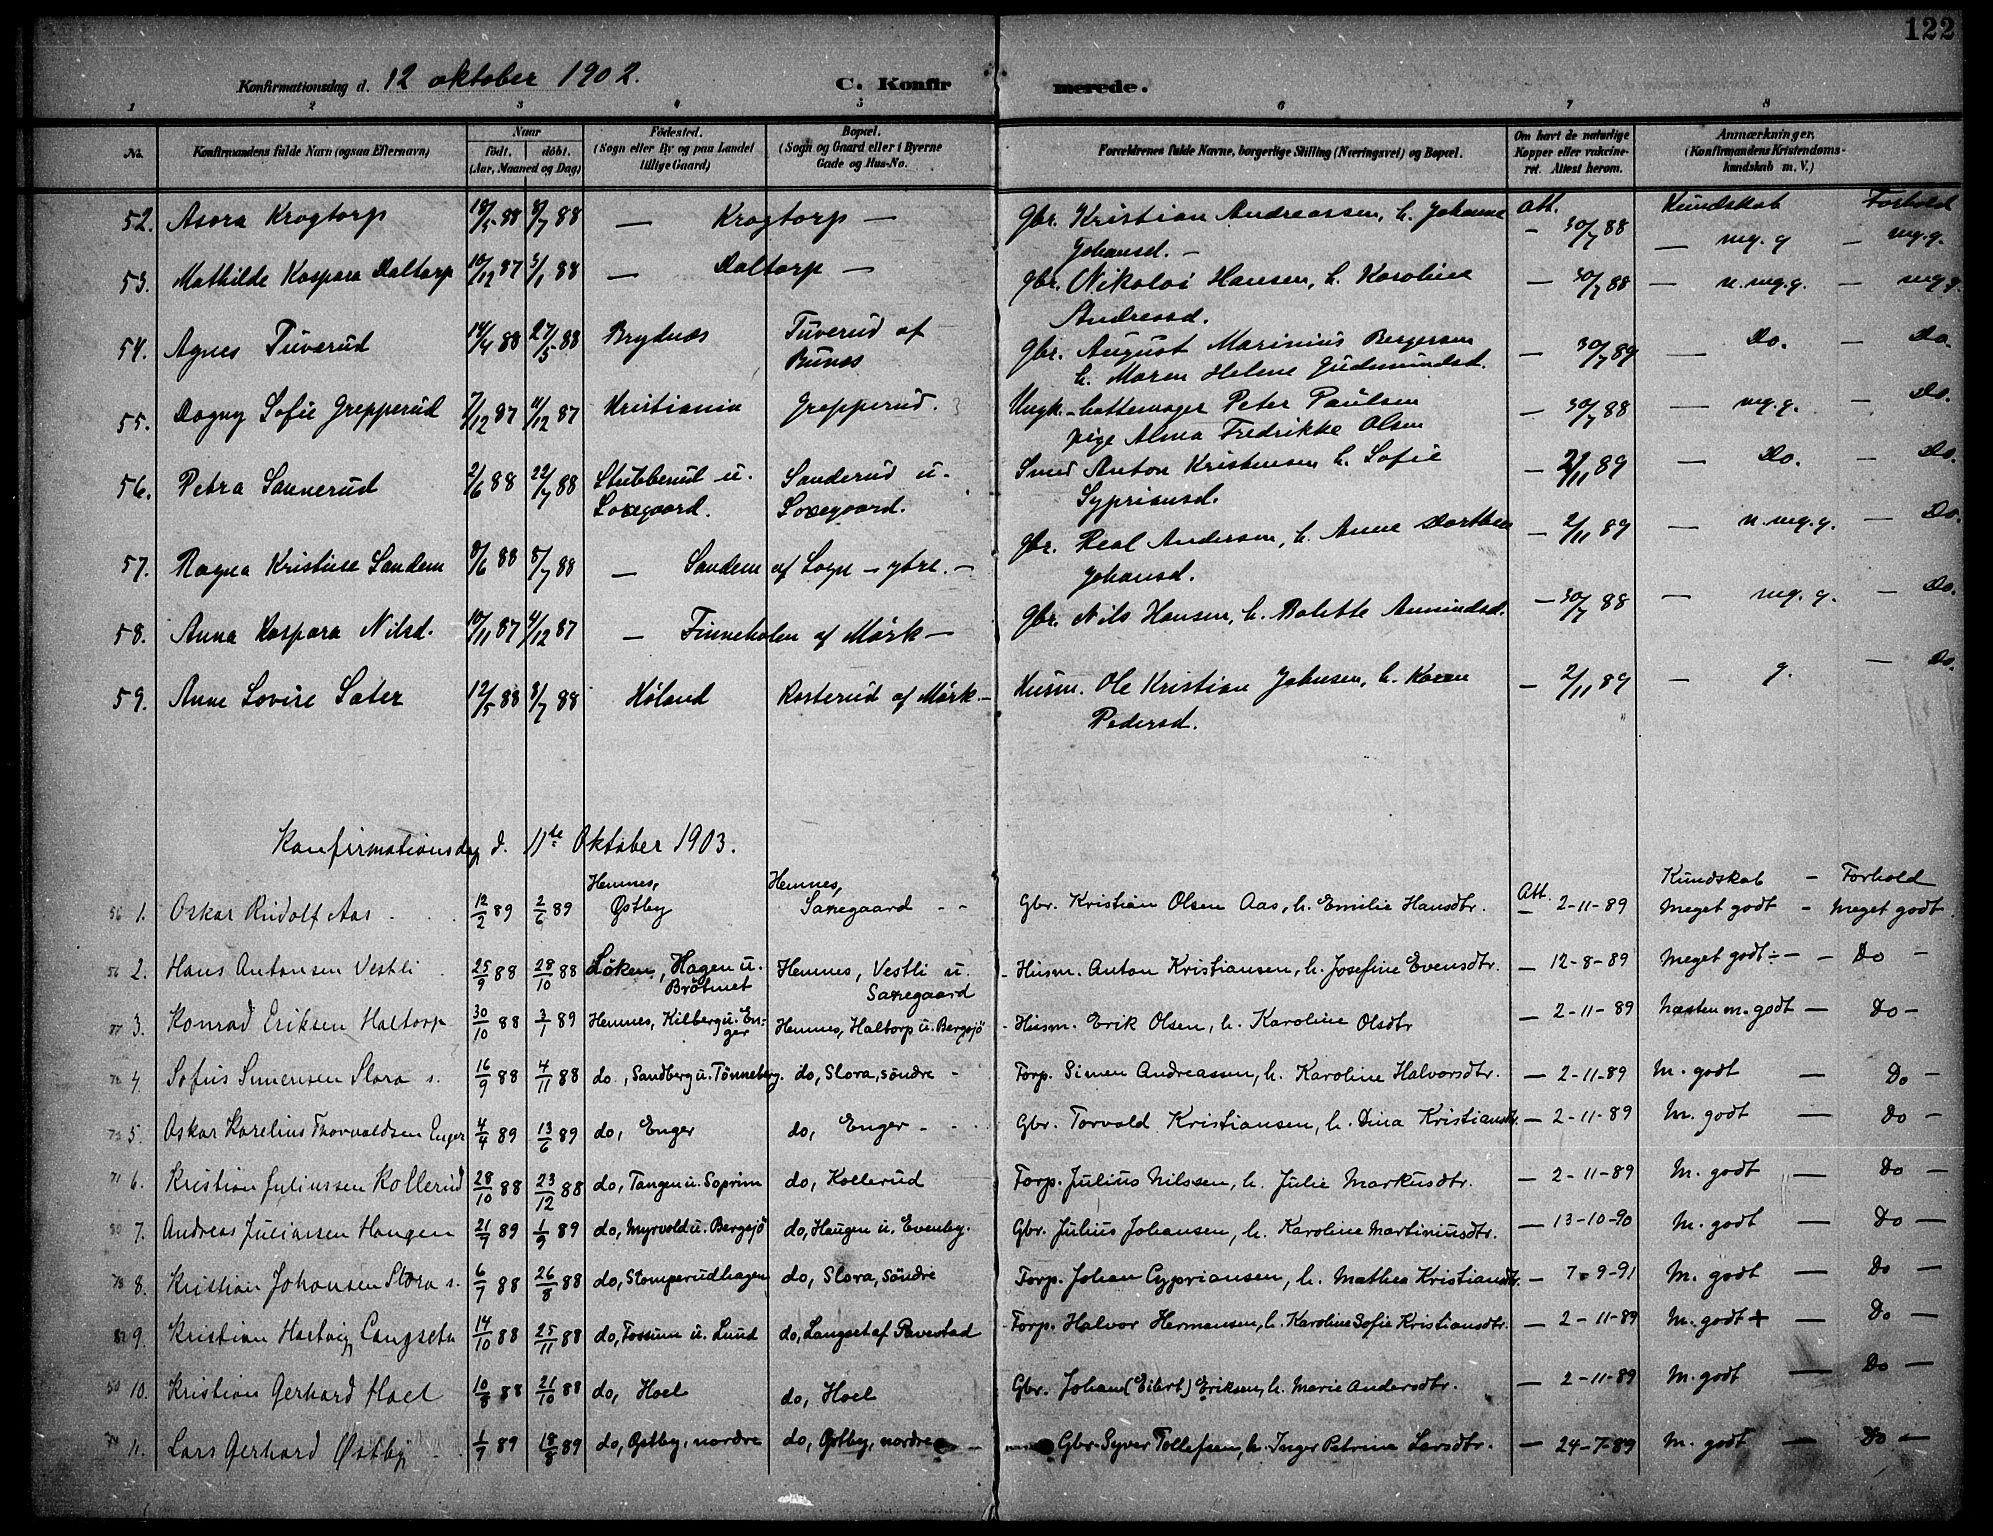 122
Konfirmationsdag d. 12 oktober 1902. C. Konfirmerede.
1 2 3 4 5 6 7 8
No. Konfirmandens fulde Navn (ogsaa Efternavn) Naar født, døbt. (Aar, Maaned og Dag) Fødested. (Sogn eller By og paa Landet tillige Gaard) Bopæl. (Sogn og Gaard eller i Byerne Gade og Hus-No. Forældrenes fulde Navne, borgerlige Stilling (Næringsvei) og Bopæl. Om havt de naturlige Kopper eller vakcineret. Attest herom. Anmærkninger, (Konfirmandens Kristendomskundskab m. V.)
Att. Kundskab Forhold
52. Asora Krogtorp 18/5 88 8/7 88 — Krogtorp — Gbr. Kristian Andreassen, h. Johanne Johansd. — — 30/7 88 — mg. g — mg.g.
53. Mathilde Kaspara Daltorp 10/12 87 3/1 88 — Daltorp — Gbr. Nikolai Hansen, h. Karoline Andreasd. — 30/7 88 — n. mg.g. — mg g.
54. Agnes Tuverud 14/4 88 27/5 88 Brydnæs Tuverud af Bunes Gbr. August Marinius Bergersen h. Maren Helene Gudmundsd. — 30/7 89 — Do. — Do.
55. Dagny Sofie Grepperud 7/12 87 11/12 87 Kristiania Grepperud. Ungk. hattemager Peter Paulsen pige Alma Fredrikke Olsen — 30/7 88 — mg.g. — Do.
56. Petra Sannerud 2/6 88 22/7 88 Stubberud u. Saxegaard. Sanderud u. Saxegaard. Smed Anton Kristensen h. Sofie Sypriansd. — 2/11 89 — Do. — Do.
57. Ragna Kristine Sandem 8/6 88 8/7 88 — Sandem af Sogn — ytre. — Gbr. Real Andersen, h. Anne Dorthea Johansd. — 2/11 89 — n. mg.g. — Do.
58. Anna Kaspara Nilsd. 10/11 87 4/12 87 — Finneholen af Mörk — Gbr. Nils Hansen, h. Bolette Amundsd. — 30/7 88 — mg. g. — Do.
59. Anne Lovise Sater 12/5 88 8/7 88 Høland Rosterud af Mörk. — Husm. Ole Kristian Johnsen, h. Karen Pedersd. — 2/11 89 — g. — Do.
Konfirmationsdag d. 11te Oktober 1903.
Kundskab — Forhold
1. Oskar Rudolf Aas 12/2 89 2/6 89 Hemnes, Østby Hemnes, Saxegaard - - Gbr. Kristian Olsen Aas, h. Emilie Hansdtr. Att. — 2-11-89 Meget godt - Meget godt.
2. Hans Antonsen Vestli 25/9 88 28/10 88 Löken, Hagen u. Bråtmet Hemnes, Vestli u. Saxegaard - Husm. Anton Kristiansen, h. Josefine Evensdtr. — 12-8-89 Meget godt ÷ - - Do —
3. Konrad Eriksen Haltorp 30/10 88 3/1 89 Hemnes, Kilberg u. Enger Hemnes, Haltorp u. Bergsjö - Husm. Erik Olsen, h. Karoline Olsdtr — 2-11-89 Næsten m. godt — Do —
4. Sofus Simensen Slora s. 16/9 88 4/11 88 do, Sandberg u. Tönneberg. do, Slora, söndre - Forp. Simen Andreassen, h. Karoline Halvorsdtr. — 2-11-89 M. godt — Do —
5. Oskar Karelius Thorvaldsen Enger 4/4 89 13/6 89 do, Enger do, Enger - - Gbr. Torvald Kristiansen, h. Dina Kristiansdtr — 2-11-89 M. godt — Do
6. Kristian Juliussen Kollerud 28/10 88 23/12 88 do, Tangen u. Soprim do, Kollerud Forp. Julius Nilssen, h. Julie Markusdtr. — 2-11-89 M. godt — Do —
7. Andreas Juliussen Haugen 21/7 89 1/9 89 do, Myrvold u. Bergsjö do, Haugen u. Evenby. Gbr. Julius Johansen, h. Karoline Martiniusdtr. — 13-10-90 M. godt — Do —
8. Kristian Johansen Slora s. 6/7 88 26/8 88 do, Stomperudhagen do, Slora, Söndre Forp. Johan Cypriansen, h. Mathea Kristiansdtr. — 7-9-91 M. godt — Do —
9. Kristian Hartvig Langseta 14/10 88 25/11 88 do, Fossum u. Lund do, Langset af Pavestad - Forp. Halvor Hermansen, h. Karoline Sofie Kristiansdtr. — 2-11-89 M. godt + — Do —
10. Kristian Gerhard Hoel 10/8 88 21/10 88 do, Hoel do, Hoel Gbr. Johan (Eilert) Eriksen, h. Marie Andersdtr. — 2-11-89 M. godt — Do —
11. Lars Gerhard Østby 1/7 89 18/8 89 do, Østby, nordre do, Østby, nordre — Gbr. Syver Tollefsen, h. Inger Petrine Larsdtr. — 24-7-89 M. godt — Do —